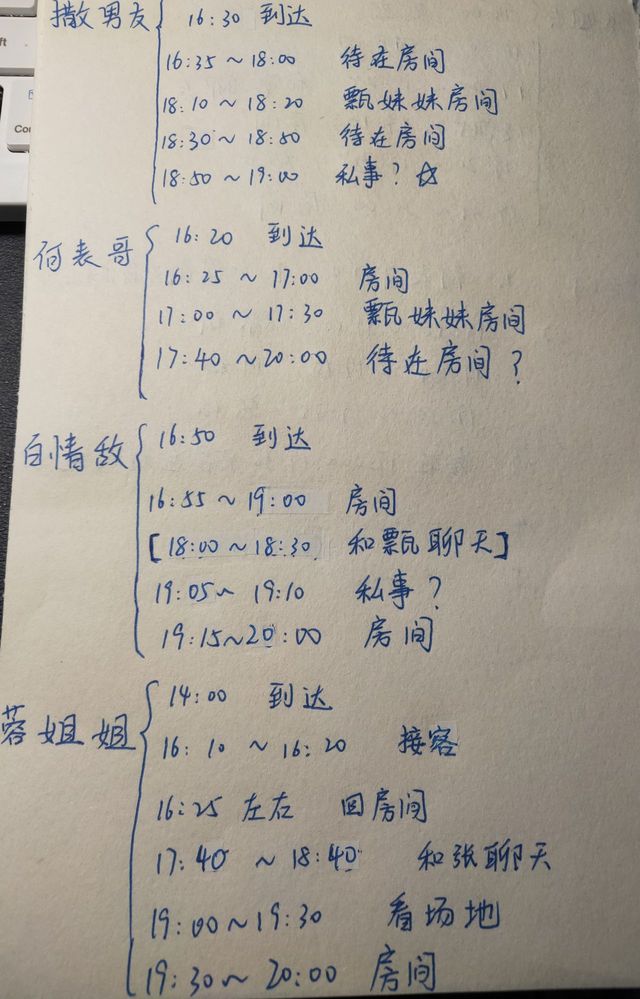 撒男友
16:30 到达
16:35~18:00 待在房间
18:10~18:20 甄妹妹房间
18:30~18:50 待在房间
18:50~19:00 私事? ☆
何表哥
16:20 到达
16:25~17:00 房间
17:00~17:30 甄妹妹房间
17:40~20:00 待在房间?
白情敌
16:50 到达
16:55~19:00 房间
[18:00~18:30 和甄聊天]
19:05~19:10 私事?
19:15~20:00 房间
蓉姐姐
14:00 到达
16:10~16:20 接客
16:25左右 回房间
17:40~18:40 和张聊天
19:00~19:30 看场地
19:30~20:00 房间